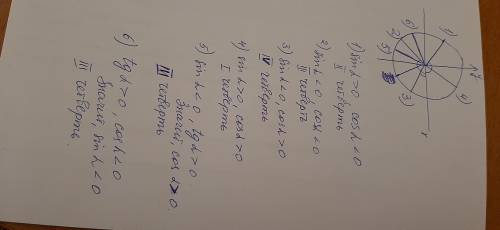 y
1)
6)
2)
5)
4)
3)
x
1) sin α > 0 cos α < 0
II четверть
2) sin α < 0, cos α < 0
III четверть
3) sin α < 0, cos α > 0
IV четверть
4) sin α > 0, cos α > 0
I четверть
5) sin α < 0, tg α > 0
Значит, cos α > 0
III четверть
6) tg α > 0, cos α < 0
Значит, sin α < 0
III четверть